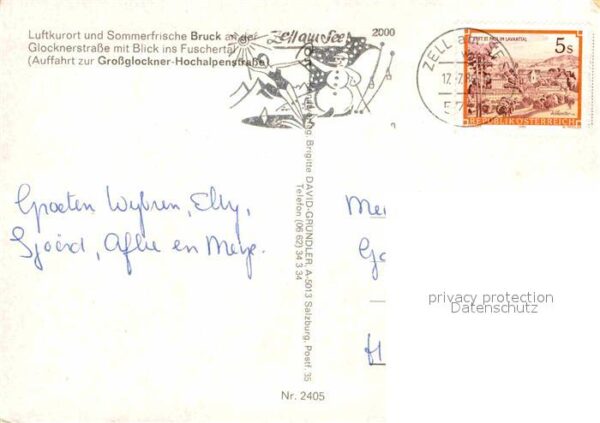 Luftkurort und Sommerfrische Bruck an der
Glocknerstraße mit Blick ins Fuschertal
(Auffahrt zur Großglockner-Hochalpenstraße)
Zell am See
2000
ZELL am SEE
17.7.
57
5s
STIFT ST. PAUL IM LAVANTTAL
REPUBLIK ÖSTERREICH
Brigitte DAVID-GRÜNDLER, A-5013 Salzburg, Postf. 35
Telefon (06 62) 34 3 34
Groeten Wybren, Elly,
Sjoerd, Aflie en
privacy protection
Datenschutz
Nr. 2405